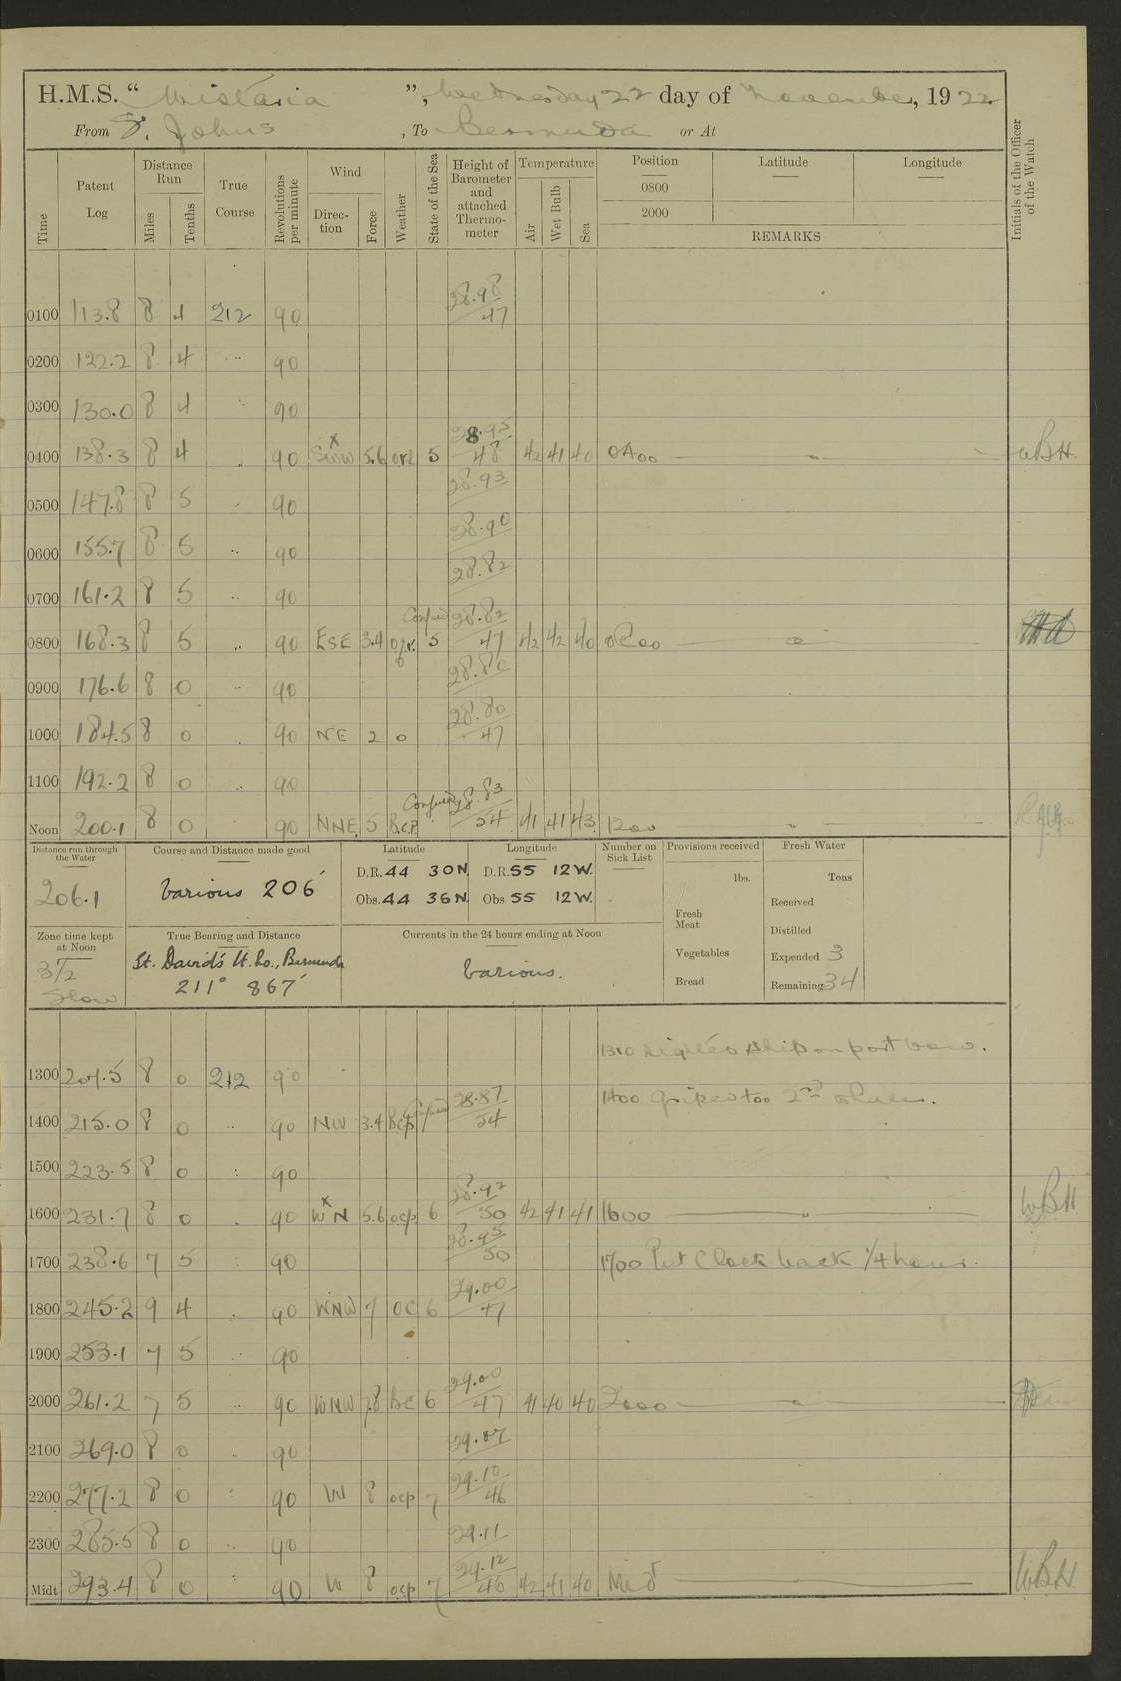 H.M.S. “ Wistaria ”, Wednesday 22 day of November, 1922
From St. Johns , To Bermuda or At
Time Patent Log Distance Run Miles Tenths True Course Revolutions per minute Wind Direction Force Weather State of the Sea Height of Barometer and attached Thermometer Temperature Air Wet Bulb Sea Position Latitude Longitude Initials of the Officer of the Watch
0800
2000
REMARKS
28.98
0100 113.8 8 4 212 90 47
0200 122.2 8 4 .. 90
0300 130.0 8 4 .. 90
28.95
0400 138.3 8 4 .. 90 5.6 5 48 42 41 40 0400 WBH.
28.93
0500 147.8 8 5 .. 90
28.90
0600 155.7 8 5 .. 90
28.82
0700 161.2 8 5 .. 90
Confused 28.82
0800 168.3 8 5 .. 90 ESE 3.4 5 47 42 42 40 0800
28.80
0900 176.6 8 0 .. 90
28.80
1000 184.5 8 0 .. 90 NE 2 o 47
1100 192.2 8 0 .. 90
Confused 28.83
Noon 200.1 8 0 90 NNE 5 B.c.p. 54 41 41 43 1200
Distance run through the Water
206.1
Course and Distance made good
Various 206′
Latitude Longitude
D.R. 44 30 N. D.R. 55 12 W.
Obs. 44 36 N. Obs. 55 12 W.
Number on Sick List
Provisions received
lbs.
Fresh Meat
Vegetables
Bread
Fresh Water
Tons
Received
Distilled
Expended 3
Remaining 34
Zone time kept at Noon
3½
Slow
True Bearing and Distance
St. David's Lt. Ho., Bermuda
211° 867′
Currents in the 24 hours ending at Noon
Various.
1310 Sighted ship on port bow.
1300 207.5 8 0 212 90
28.87 1400
1400 215.0 8 0 .. 90 NW 3.4 Bcp Confused 54
1500 223.5 8 0 : 90
28.92
1600 231.7 8 0 . 90 WxN 5.6 ocp 6 50 42 41 41 1600 WBH
28.95
1700 238.6 7 5 90 50 1700 Put Clock back ¼ hour.
29.00
1800 245.2 9 4 90 WNW 7 OC 6 47
1900 253.1 7 5 .. 90
29.00
2000 261.2 7 5 .. 90 WNW 7.8 BC 6 47 41 40 40 2000
29.07
2100 269.0 8 0 .. 90
29.10
2200 277.2 8 0 . 90 W 8 ocp 7 46
29.11
2300 285.5 8 0 .. 90
29.12
Midt 293.4 8 0 : 90 W 8 ocp 7 46 42 41 40 Mid WBH